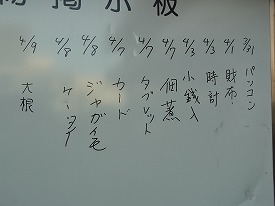 掲示板
3/31 パソコン
4/1 財布
4/3 時計
4/3 小銭入
4/7
4/7 タブレット
4/7 カード
4/8 ジャガイモ
4/8 ケータイ
4/9 大根